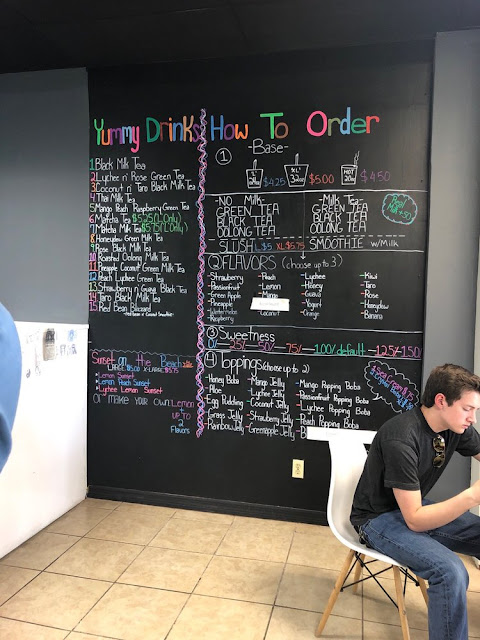 Yummy Drinks
1 Black Milk Tea
2 Lychee n' Rose Green Tea
3 Coconut n' Taro Black Milk Tea
4 Thai Milk Tea
5 Mango Peach Raspberry Green Tea
6 Matcha Tea $5.25 (L Only)
7 Matcha Milk Tea $5.75 (L Only)
8 Honeydew Green Milk Tea
9 Rose Black Milk Tea
10 Roasted Oolong Milk Tea
11 Pineapple Coconut Green Milk Tea
12 Peach Lychee Green Tea
13 Strawberry n' Guava Black Tea
14 Taro Black Milk Tea
15 Red Bean Blizzard
Sunset on the Beach
LARGE $5.00 X-LARGE $5.75
Lemon Sunset
Lemon Peach Sunset
Lychee Lemon Sunset
Or make your own Lemon
+ UP TO
2
Flavors
How To Order
1
-Base-
$4.25
XL
32oz
$5.00
HOT
$4.50
-NO Milk-
GREEN TEA
BLACK TEA
OOLONG TEA
-Milk Tea-
GREEN TEA
BLACK TEA
OOLONG TEA
SLUSH L $5 XL $5.75
SMOOTHIE w/Milk
2 FLAVORS (choose up to 3)
-Strawberry
-Passionfruit
-Green Apple
-Pineapple
-Watermelon
-Raspberry
-Peach
-Lemon
-Mango
-Coconut
-Lychee
-Honey
-Guava
-Yogurt
-Orange
-Kiwi
-Taro
-Rose
-Honeydew
-Banana
3 Sweetness
0% 25% 50% 75% 100% default 125% 150%
4 Toppings (choose up to 2)
-Honey Boba
-Aloe
-Egg Pudding
-Grass Jelly
-Rainbow Jelly
-Mango Jelly
-Coffee Jelly
-Coconut Jelly
-Strawberry Jelly
-Green Apple Jelly
-Mango Popping Boba
-Passionfruit Popping Boba
-Lychee Popping Boba
-Peach Popping Boba